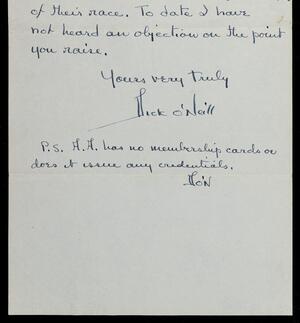 of their race. To date I have
not heard an objection on the point
you raise.
Yours very truly
Dick O'Neill
P.S. A.A. has no membership cards or
does it issue any credentials.
DO'N